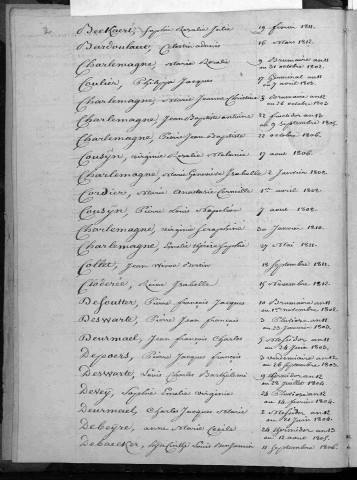 Beekaert, Sophie Rosalie Julie 19 février 1811.
Bardoulaut, Célestin 16 Mars 1812.
Charlemagne, Marie Rosalie 9 Brumaire an 11 ou 31 octobre 1802.
Coulier, Philippe Jacques 17 Germinal an 11 ou 7 avril 1803.
Charlemagne, Marie Jeanne Christine 3 Brumaire an 12 ou 26 octobre 1803.
Charlemagne, Jean Baptiste antoine 22 fructidor an 13 ou 9 septembre 1805.
Charlemagne, Pierre Jean Baptiste 22 octobre 1806.
Cousyn, virginie Rosalie Mélanie 17 aout 1806.
Charlemagne, Marie Geneviève Isabelle 2 janvier 1808.
Cordier, Marie Anastasie 1er avril 1808.
Cousyn, Pierre Louis Napoléon 7 aout 1808.
Charlemagne, virginie Séraphine 30 Janvier 1810.
Charlemagne, Amélie Sophie 27 Mai 1811.
Collet, Jean 18 Septembre 1811.
Reine Isabelle 15 Novembre 1812.
Desoutter, Pierre françois Jacques 10 Brumaire an 11 ou 1er novembre 1802.
Deswarte, Pierre Jean françois 3 Pluviose an 11 ou 23 janvier 1803.
Deurmael, Jean françois Charles 5 Messidor an 11 ou 24 Juin 1803.
Pierre Jacques françois 3 vendémiaire an 12 ou 26 Septembre 1803.
Deswarte, Louis Barthélemi 9 thermidor an 12 ou 28 juillet 1804.
Devey, Sophie Amélie virginie 24 Pluviose an 12 ou 14 février 1804.
Deurmael, Charles Jacques Marie 2 Messidor an 12 ou 21 Juin 1804.
Debeyre, anne Marie Cécile 24 thermidor an 13 ou 12 aout 1805.
Debaecker, Hyacinthe Louis Benjamin 11 Septembre 1806.